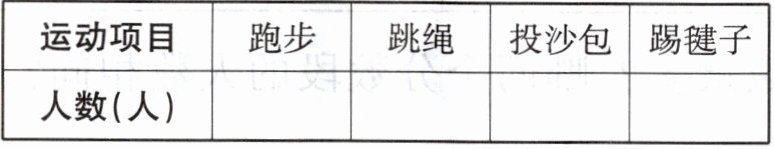 运动项目 跑步 跳绳 投沙包 踢毽子
人数(人)